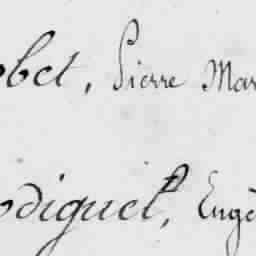 obet, Pierre Mar
odiguel, Eugè